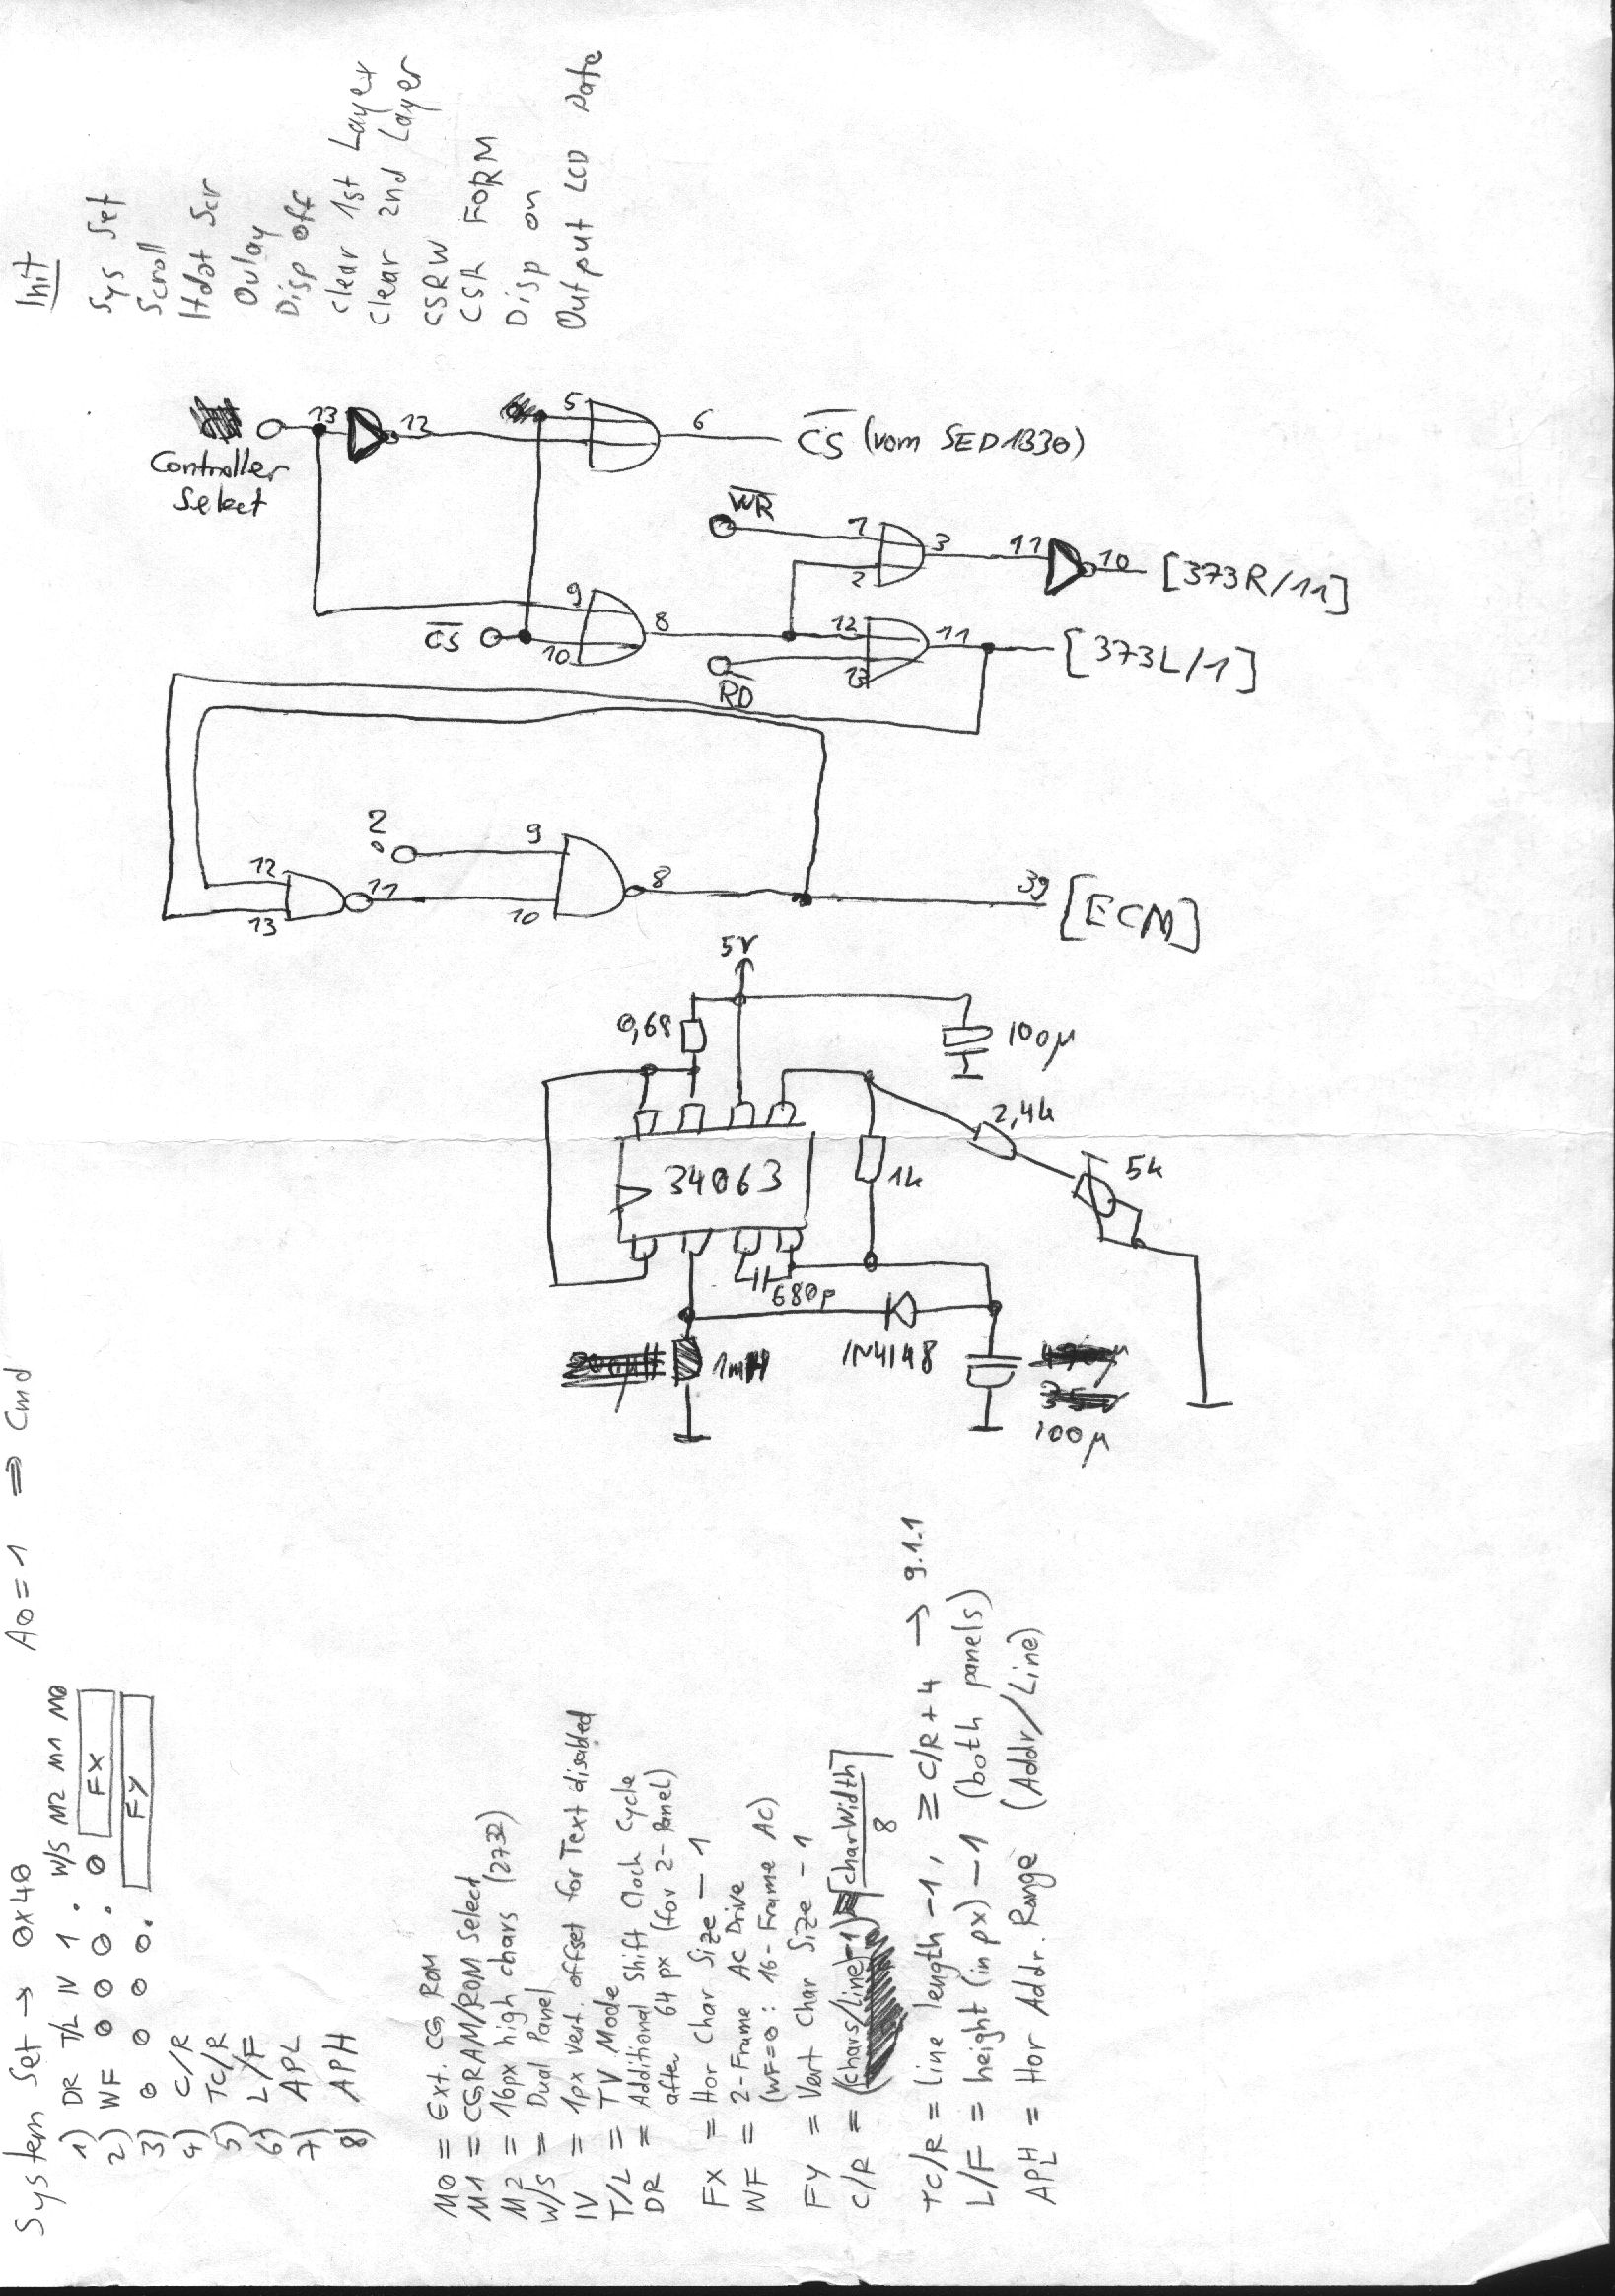 Init
Sys Set
Scroll
Hdot Scr
Ovlay
Disp off
clear 1st Layer
clear 2nd Layer
CSRW
CSR FORM
Disp on
Output LCD Data
Controller
Select
13
12
5
6
CS (vom SED1330)
WR
1
2
3
11
10
[373R/11]
9
10
8
CS
12
13
11
[373L/1]
RD
?
9
12
13
11
10
8
39
[ECM]
5V
0,68
100µ
2,4k
34063
1k
5k
680p
1N4148
1mH
100µ
System Set → 0x40
A0=1 ⇒ Cmd
1) DR T/L IV 1 W/S M2 M1 M0
2) WF 0 0 0 0 FX
3) 0 0 0 0 FY
4) C/R
5) TC/R
6) L/F
7) APL
8) APH
M0 = Ext. CG ROM
M1 = CGRAM/ROM Select
M2 = 16px high chars (2732)
W/S = Dual Panel
IV = 1px vert. offset for Text disabled
T/L = TV Mode
DR = Additional Shift Clock Cycle
after 64 px (for 2-Panel)
FX = Hor Char Size - 1
WF = 2-Frame AC Drive
(WF=0: 16-Frame AC)
FY = Vert Char Size - 1
C/R = (chars/line-1) [charWidth
8
TC/R = line length -1, ≥ C/R+4 → 9.1.1
L/F = height (in px) -1 (both panels)
APLH = Hor Addr. Range (Addr/Line)